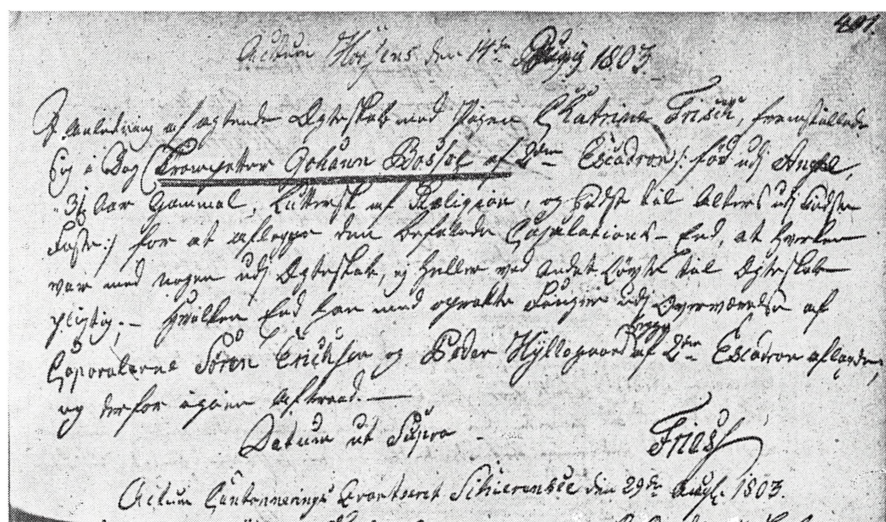 401.
Actum Horsens den 14de Juny 1803.
I Anledning af agtende Ægteskab med Pigen Cathrine Frisch, fremstillede
sig i Dag Trompetter Johann Bossel af 2den Escadron /: fød udj Angel,
Aar Gammel, Luttersk af Religion, og sidst til Alters udj sidste
Faste :/ for at aflegge den befalede Copulations-Eed, at hverken
var med nogen udj Ægteskab, ej heller ved andet Løvte til Ægteskab
pligtig; - hvilken Eed han med oprakte Fingre udj Overværelse af
Corporalerne Søren Erichsen og Peder Hyllogaard af 2den Escadron aflagde,
og derfor igien aftraad. —
Datum ut Supra -
Friess
Actum Cantonnerings Qvarteret Schierensee den 29de Augst. 1803.